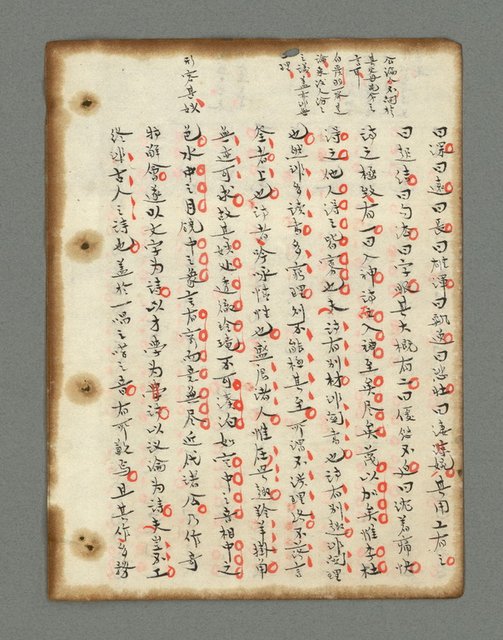 曰深曰遠曰長曰雄渾曰飄逸曰悲壯曰淒婉其用工有三
曰起結曰句法曰字眼其大概有二曰優游不迫曰沉着痛快
詩之極致有一曰入神詩而入神至矣盡矣蔑以加矣惟李杜
得之他人得之蓋寡也夫詩有別材非関書也詩有別趣非関理
也然非多讀書多窮理則不能極其至所謂不涉理路不落言
筌者上也詩者吟咏情性也盛唐諸人惟在興趣羚羊掛角
無迹可求故其妙處透徹玲瓏不可湊泊如空中之音相中之
形容其妙
色水中之月鏡中之象言有窮而意無盡近代諸公乃作奇
特解會遂以文字為詩以才學為詩以議論為詩夫豈不工
終非古人之詩也蓋於一唱三嘆之音有所歉焉且其作多務